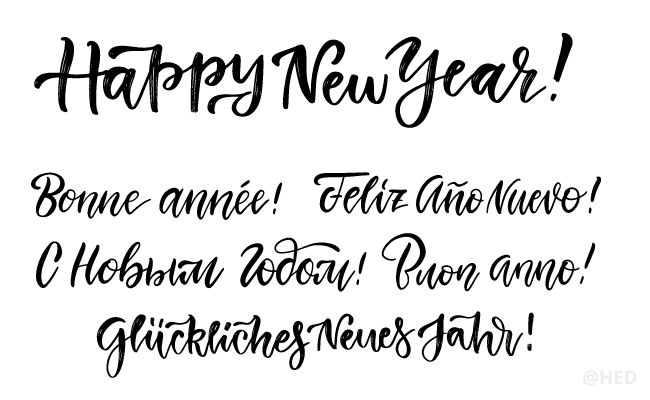 Happy New Year!
Bonne année! Feliz Año Nuevo!
С Новым Годом! Buon anno!
Glückliches Neues Jahr!
@HED